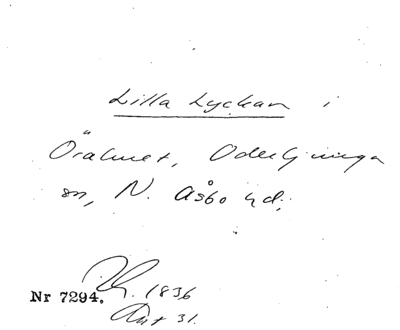 Lilla Lyckan i
Öralund, Oderljunga
sn, N. Åsbo hd.
Nr 7294. 1836
Ant 31.